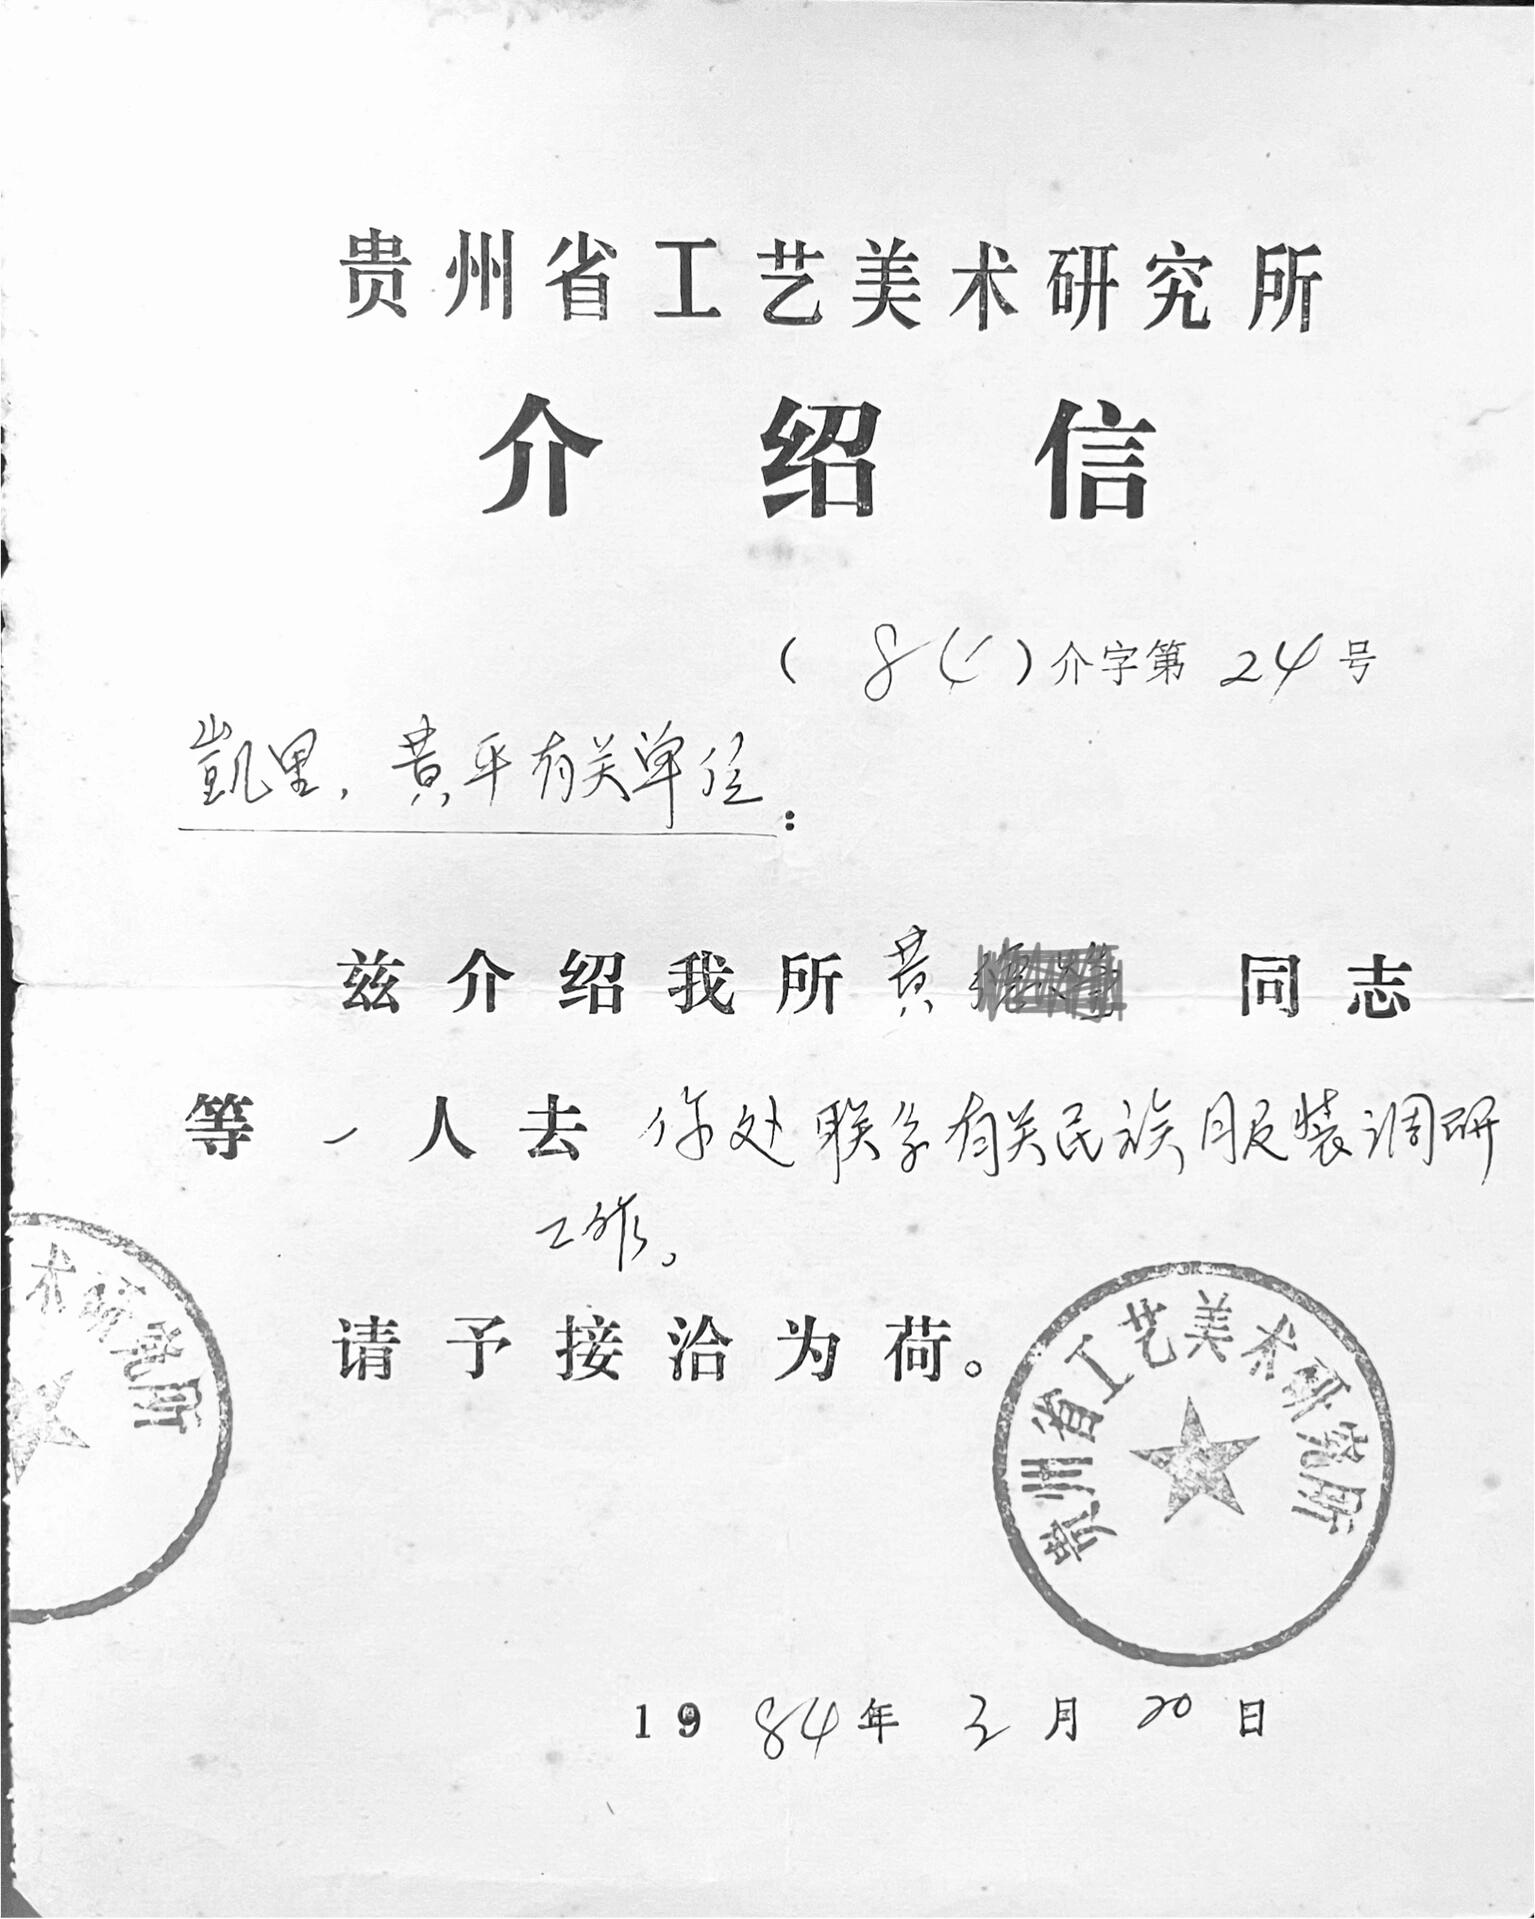 贵州省工艺美术研究所
介绍信
(84)介字第24号
凯里，黄平有关单位：
兹介绍我所黄 同志
等一人去你处联系有关民族服装调研
工作。
请予接洽为荷。
术研究所
贵州省工艺美术研究所
1984年 月20日